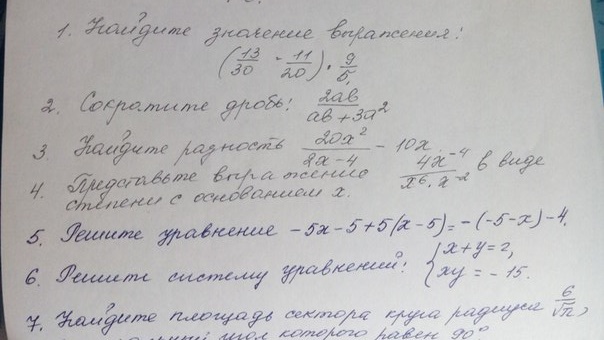 1. Найдите значение выражения:
(13/30 - 11/20) · 9/5
2. Сократите дробь: 2ab/(ab + 3a²)
3. Найдите разность 20x²/(2x-4) - 10x
4. Представьте выражение 4x⁻⁴/(x⁶·x⁻²) в виде
степени с основанием x.
5. Решите уравнение -5x-5+5(x-5)=-(-5-x)-4.
6. Решите систему уравнений: { x+y=2,
xy = -15.
7. Найдите площадь сектора круга радиуса 6/√π,
угол которого равен 90°